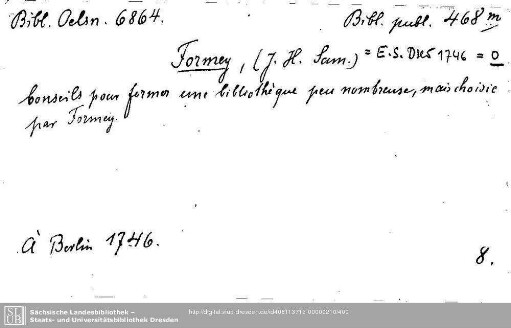 Bibl. Oelsn. 6864. Bibl. publ. 468 m
Formey, (J. H. Sam.) = E.S. Ds 1746 = 0
Conseils pour former une bibliothèque peu nombreuse, mais choisie
par Formey.
À Berlin 1746.
8.
Sächsische Landesbibliothek –
Staats- und Universitätsbibliothek Dresden